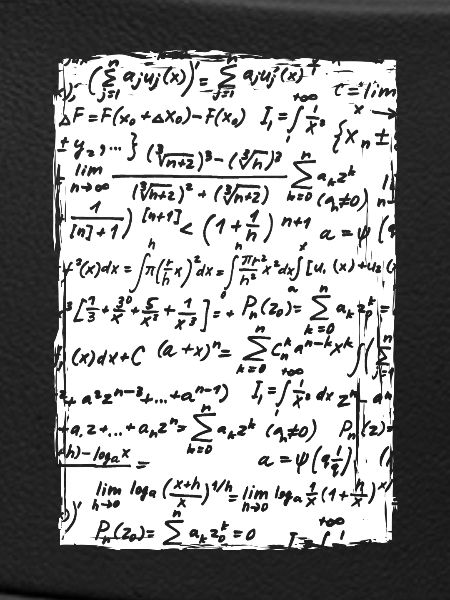 (Σ_{j=1}^{n} a_j u_j(x))' = Σ_{j=1}^{n} a_j u_j'(x) + c = lim
ΔF = F(x₀ + Δx₀) - F(x₀) I₁ = ∫_{1}^{+∞} 1/x³ x →
± y₂, ...} {x_n ±
lim_{n→∞} ((∛(n+2))³ - (∛n)³) / ((∛(n+2))² + (∛(n+2)) Σ_{k=0}^{n} a_k z^k
1/([n]+1)) [n+1] < (1 + 1/n) n+1 (a_n≠0) a = ψ(q
y³(x)dx = ∫_{0}^{h} π(r/h x)² dx = ∫_{0}^{h} πr²/h² x² dx ∫_{a}^{x} [u₁(x) + u₂(x)
³[7/3 + 3⁰/x + 5/x² + 1/x³] = + P_n(z₀) = Σ_{k=0}^{n} a_k z₀^k =
(x)dx + C (a+x)ⁿ = Σ_{k=0}^{n} C_n^k a^{n-k} x^k ∫(Σ_{j=1}^{n}
+ a²z^{n-3} + ... + a^{n-1}) I₁ = ∫_{1}^{+∞} 1/x³ dx zⁿ - aⁿ
+ a₁z + ... + a_n zⁿ = Σ_{k=0}^{n} a_k z^k (a_n≠0) P_n(z) =
+h) - log_a x = a = ψ(q 1/q)
lim_{h→0} log_a ((x+h)/x)^{1/h} = lim_{h→0} log_a 1/x (1 + h/x)^{x/
)' P_n(z₀) = Σ^{n} a_k z₀^k = 0 I = ∫^{+∞} 1